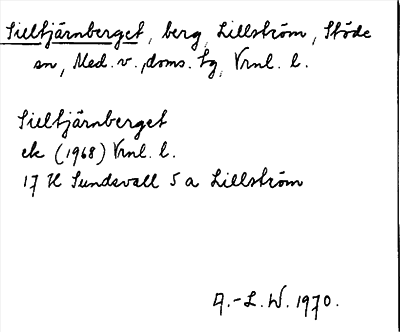 Sieltjärnberget, berg, Lillström, Stöde
sn, Med. v., doms. tg, Vrnl. l.
Sieltjärnberget
ek (1968) Vrnl. l.
17 H Sundsvall 5 a Lillström
A.-L. W. 1970.